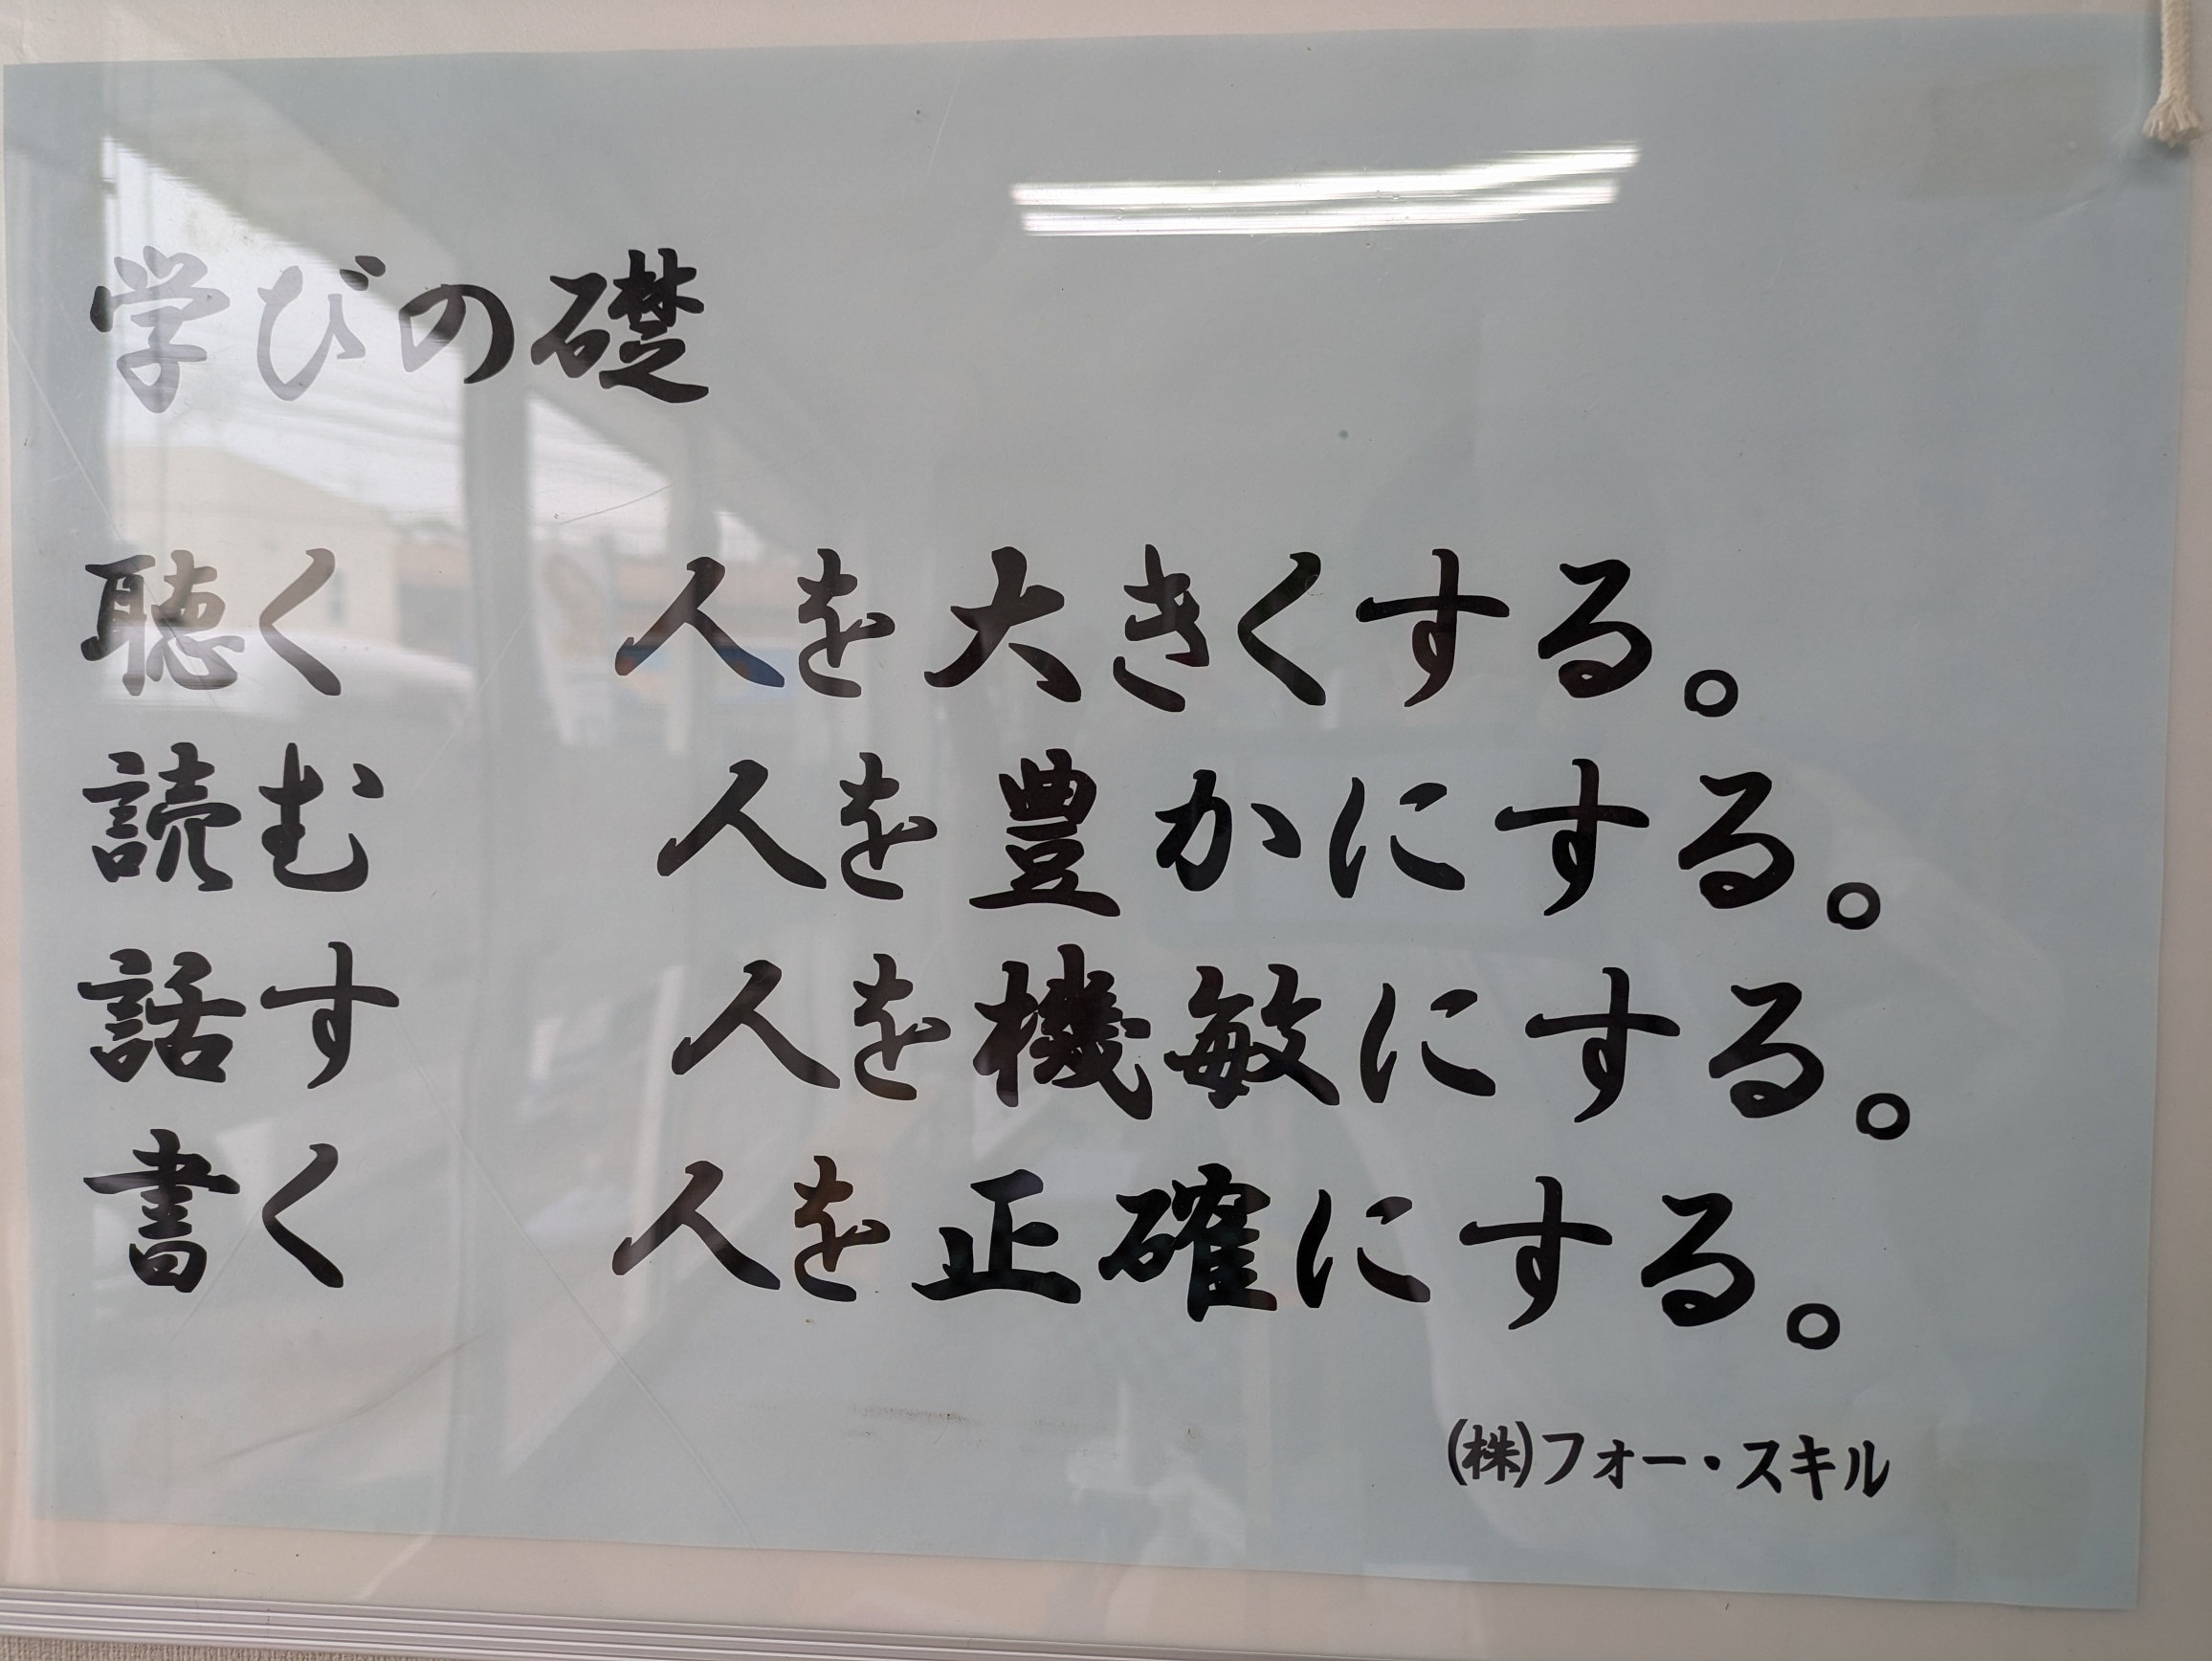 学びの礎
聴く　人を大きくする。
読む　人を豊かにする。
話す　人を機敏にする。
書く　人を正確にする。
(株)フォー・スキル